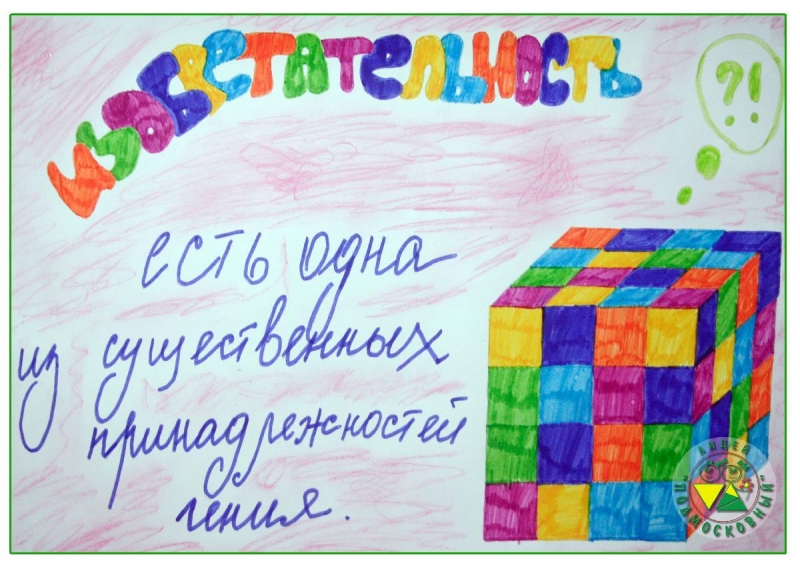 ИЗОБРЕТАТЕЛЬНОСТЬ
?!
есть одна
из существенных
принадлежностей
гения.
ЛИЦЕЙ
"ПОДМОСКОВНЫЙ"